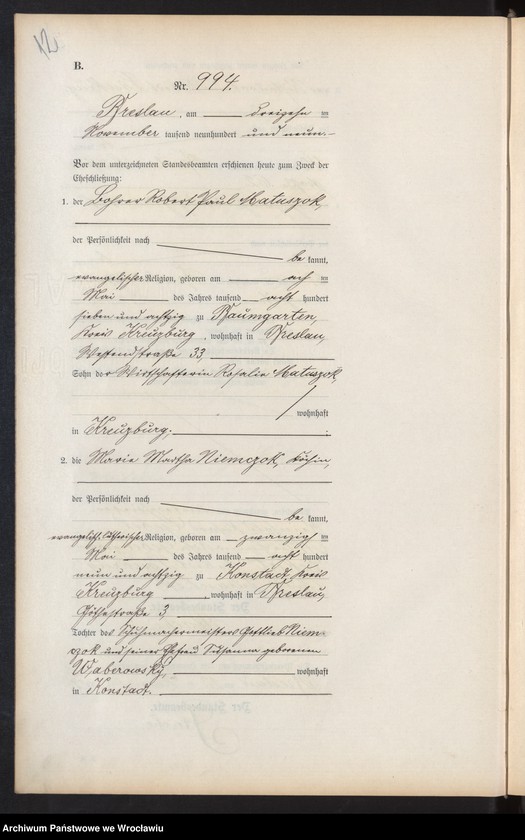 12
B.
Nr. 994.
Breslau, am dreizehn ten
November tausend neunhundert und neun.
Vor dem unterzeichneten Standesbeamten erschienen heute zum Zweck der
Eheschließung:
1. der Bohrer Robert Paul Matuszok,
der Persönlichkeit nach
be kannt,
evangelischer Religion, geboren am
Mai des Jahres tausend acht hundert
sieben und achtzig zu Baumgarten,
Kreis Kreuzburg, wohnhaft in Breslau,
Westendstraße 33,
Sohn der Wirtschafterin Rosalie Matuszok,
wohnhaft
in Kreuzburg.
2. die Marie Martha Niemczok, Köchin,
der Persönlichkeit nach
be kannt,
Religion, geboren am zwanzig ten
Mai des Jahres tausend acht hundert
neun und achtzig zu Konstadt, Kreis
Kreuzburg, wohnhaft in Breslau,
3
Tochter des Schuhmachermeisters Gottlieb Niem-
czok und seiner Ehefrau Susanna geborenen
wohnhaft
in Konstadt.
Archiwum Państwowe we Wrocławiu